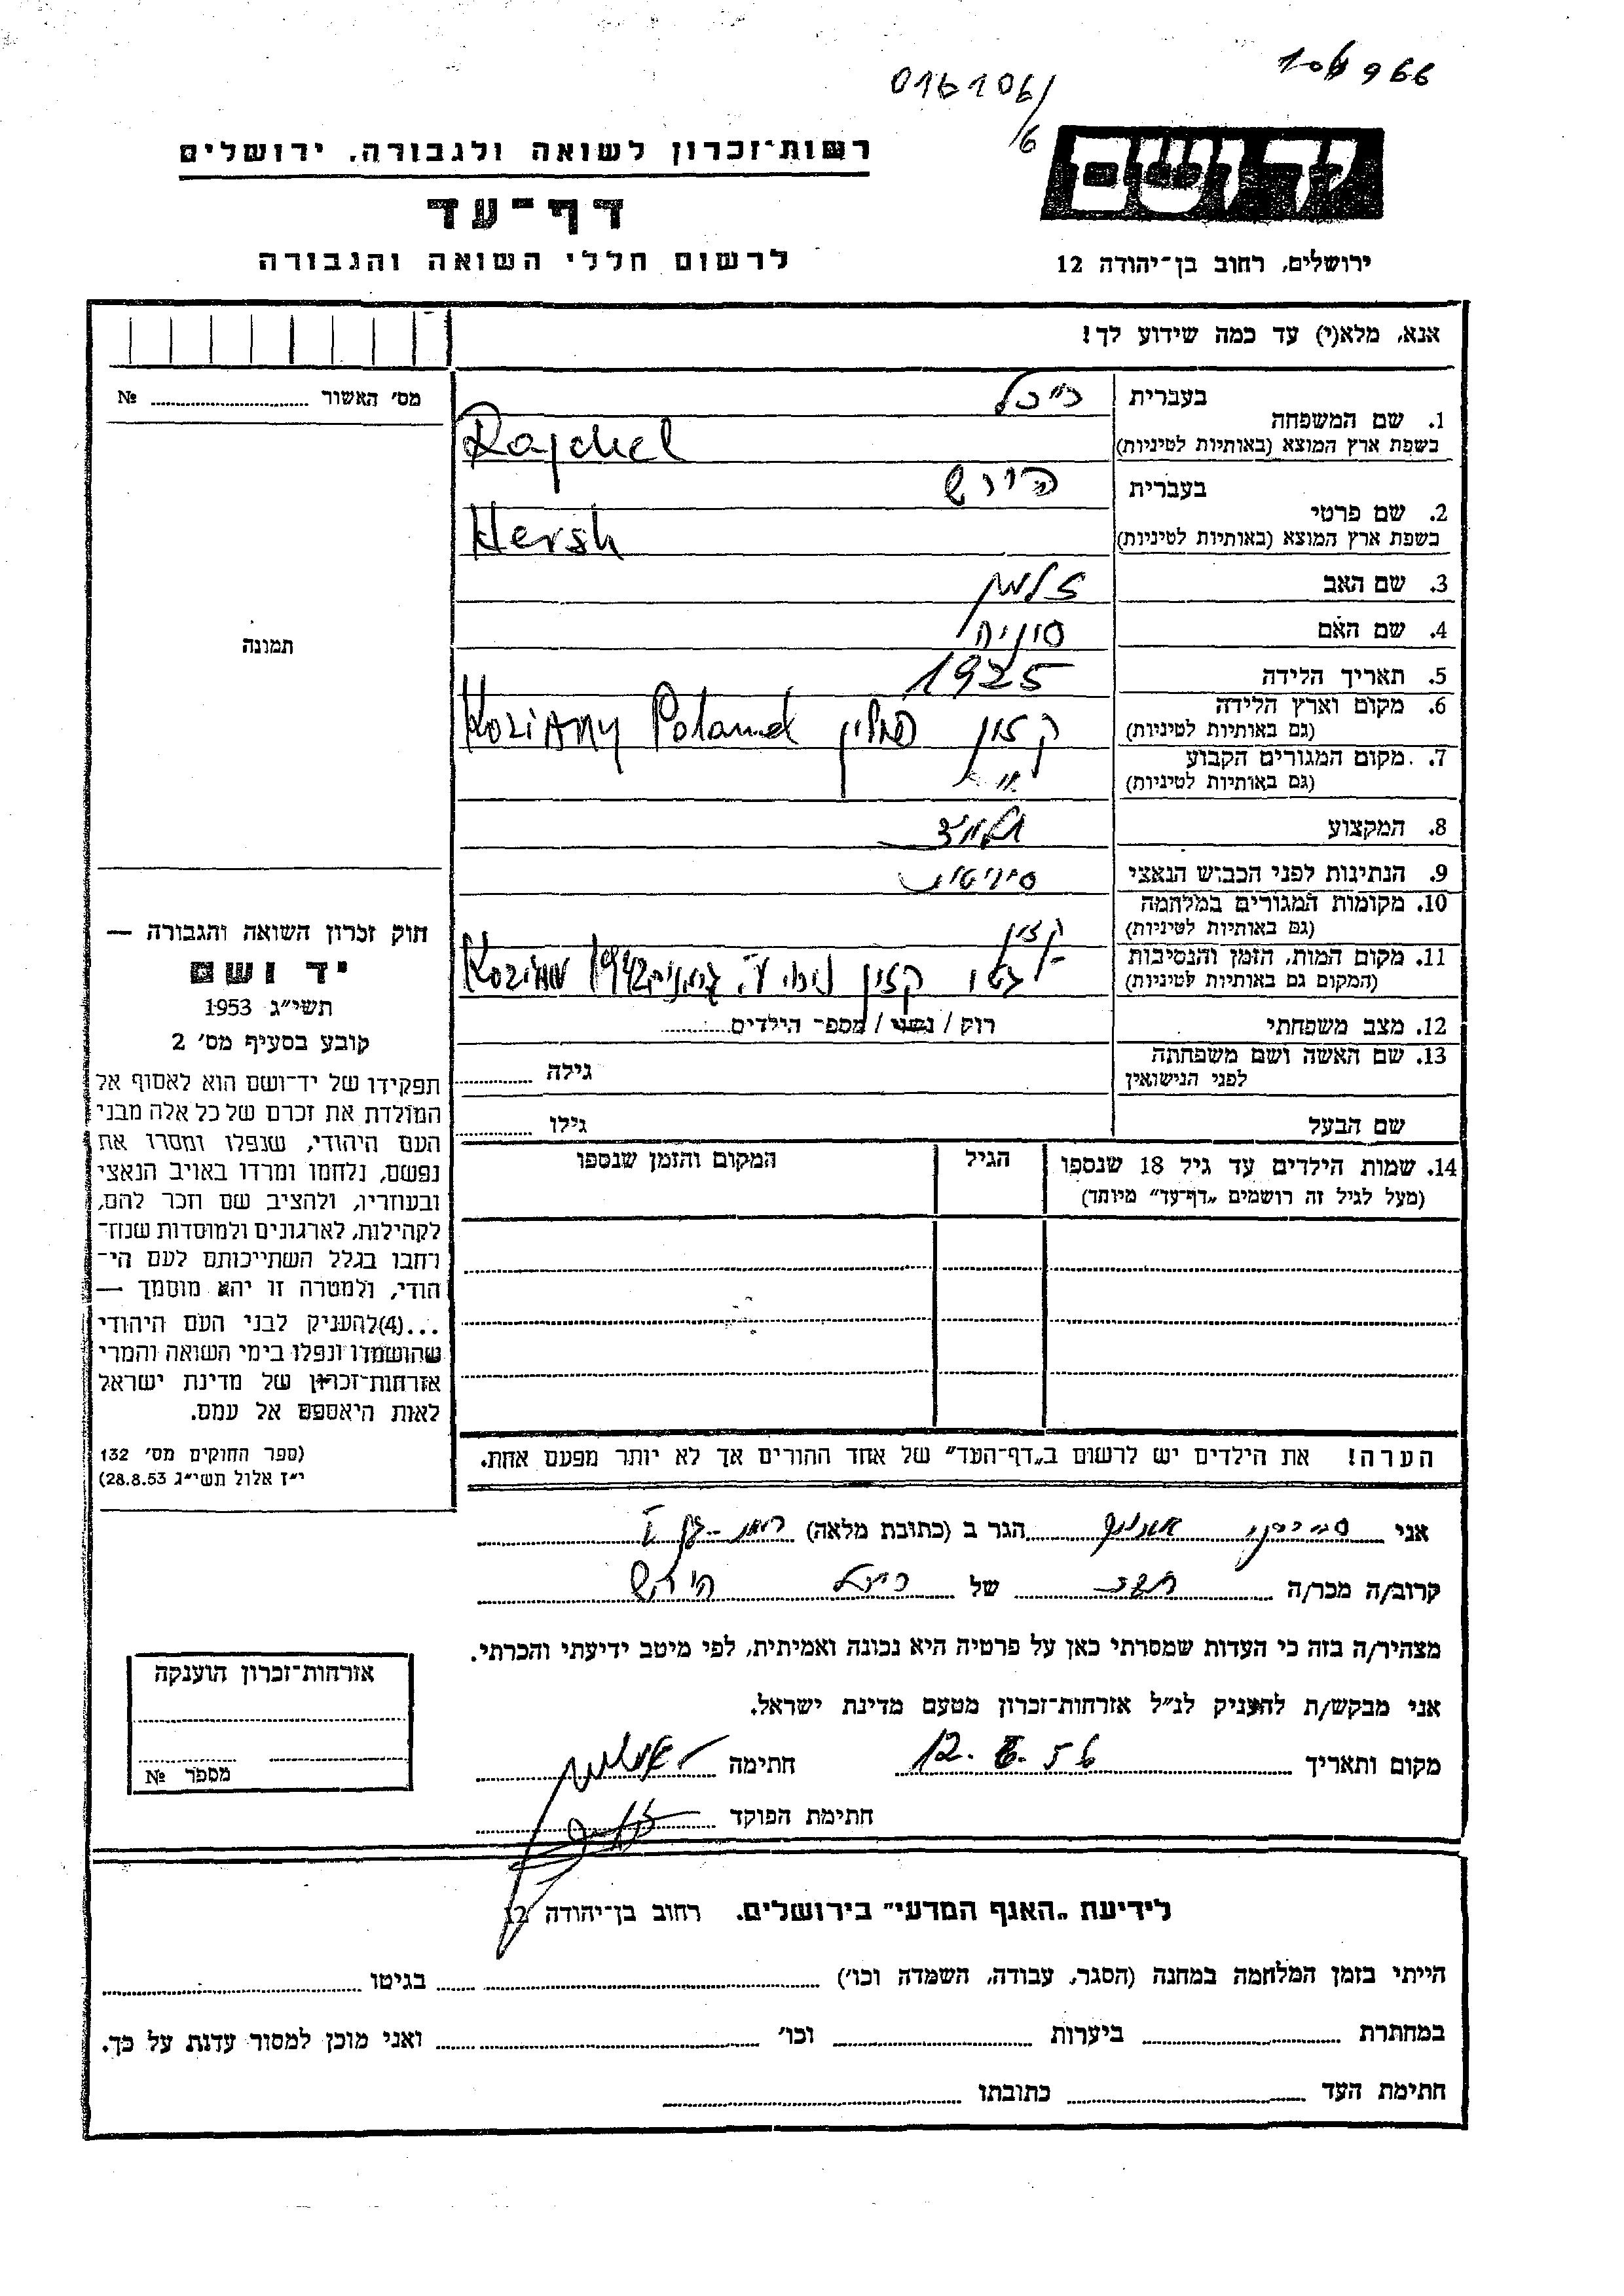 016106/6
רשות־זכרון לשואה ולגבורה, ירושלים
דף־עד
לרשום חללי השואה והגבורה
ידושם
ירושלים, רחוב בן־יהודה 12
אנא, מלא(י) עד כמה שידוע לך!
מס׳ האשור № 
תמונה
חוק זכרון השואה והגבורה —
יד ושם
תשי״ג 1953
קובע בסעיף מס׳ 2
תפקידו של יד־ושם הוא לאסוף אל
המולדת את זכרם של כל אלה מבני
העם היהודי, שנפלו ומסרו את
נפשם, נלחמו ומרדו באויב הנאצי
ובעוזריו, ולהציב שם וזכר להם,
לקהילות, לארגונים ולמוסדות שנח־
רחבו בגלל השתייכותם לעם הי־
הודי, ולמטרה זו יהא מוסמך —
...(4)להעניק לבני העם היהודי
שהושמדו ונפלו בימי השואה והמרי
אזרחות־זכרון של מדינת ישראל
לאות היאספם אל עמם.
(ספר החוקים מס׳ 132
י״ז אלול תשי״ג 28.8.53)
1. שם המשפחה
בעברית
בשפת ארץ המוצא (באותיות לטיניות) Rajchel
2. שם פרטי
בעברית הירש
בשפת ארץ המוצא (באותיות לטיניות) Hersh
3. שם האב זלמן
4. שם האם סוניה
5. תאריך הלידה 1925
6. מקום וארץ הלידה
(גם באותיות לטיניות) קזיון פולין Koziany Poland
7. מקום המגורים הקבוע
(גם באותיות לטיניות)
8. המקצוע תלמיד
9. הנתינות לפני הכבוש הנאצי
10. מקומות המגורים במלחמה
(גם באותיות לטיניות) קזיון
11. מקום המות, הזמן והנסיבות
(המקום גם באותיות לטיניות) גטו קזיון 1942
12. מצב משפחתי רווק / נשוי / מספר הילדים
13. שם האשה ושם משפחתה
לפני הנישואין גילה
שם הבעל גילו
14. שמות הילדים עד גיל 18 שנספו
(מעל לגיל זה רושמים „דף־עד״ מיוחד)
הגיל
המקום והזמן שנספו
הערה! את הילדים יש לרשום ב„דף־העד״ של אחד ההורים אך לא יותר מפעם אחת.
אני הגר ב (כתובת מלאה) רמת־גן
קרוב/ה מכר/ה של הירש
מצהיר/ה בזה כי העדות שמסרתי כאן על פרטיה היא נכונה ואמיתית, לפי מיטב ידיעתי והכרתי.
אני מבקש/ת להעניק לנ״ל אזרחות־זכרון מטעם מדינת ישראל.
מקום ותאריך חתימה
חתימת הפוקד
אזרחות־זכרון הוענקה
מספר №
לידיעת „האגף המדעי״ בירושלים, רחוב בן־יהודה 12
הייתי בזמן המלחמה במחנה (הסגר, עבודה, השמדה וכו׳) בגיטו
במחתרת ביערות וכו׳ ואני מוכן למסור עדות על כך.
חתימת העד כתובתו